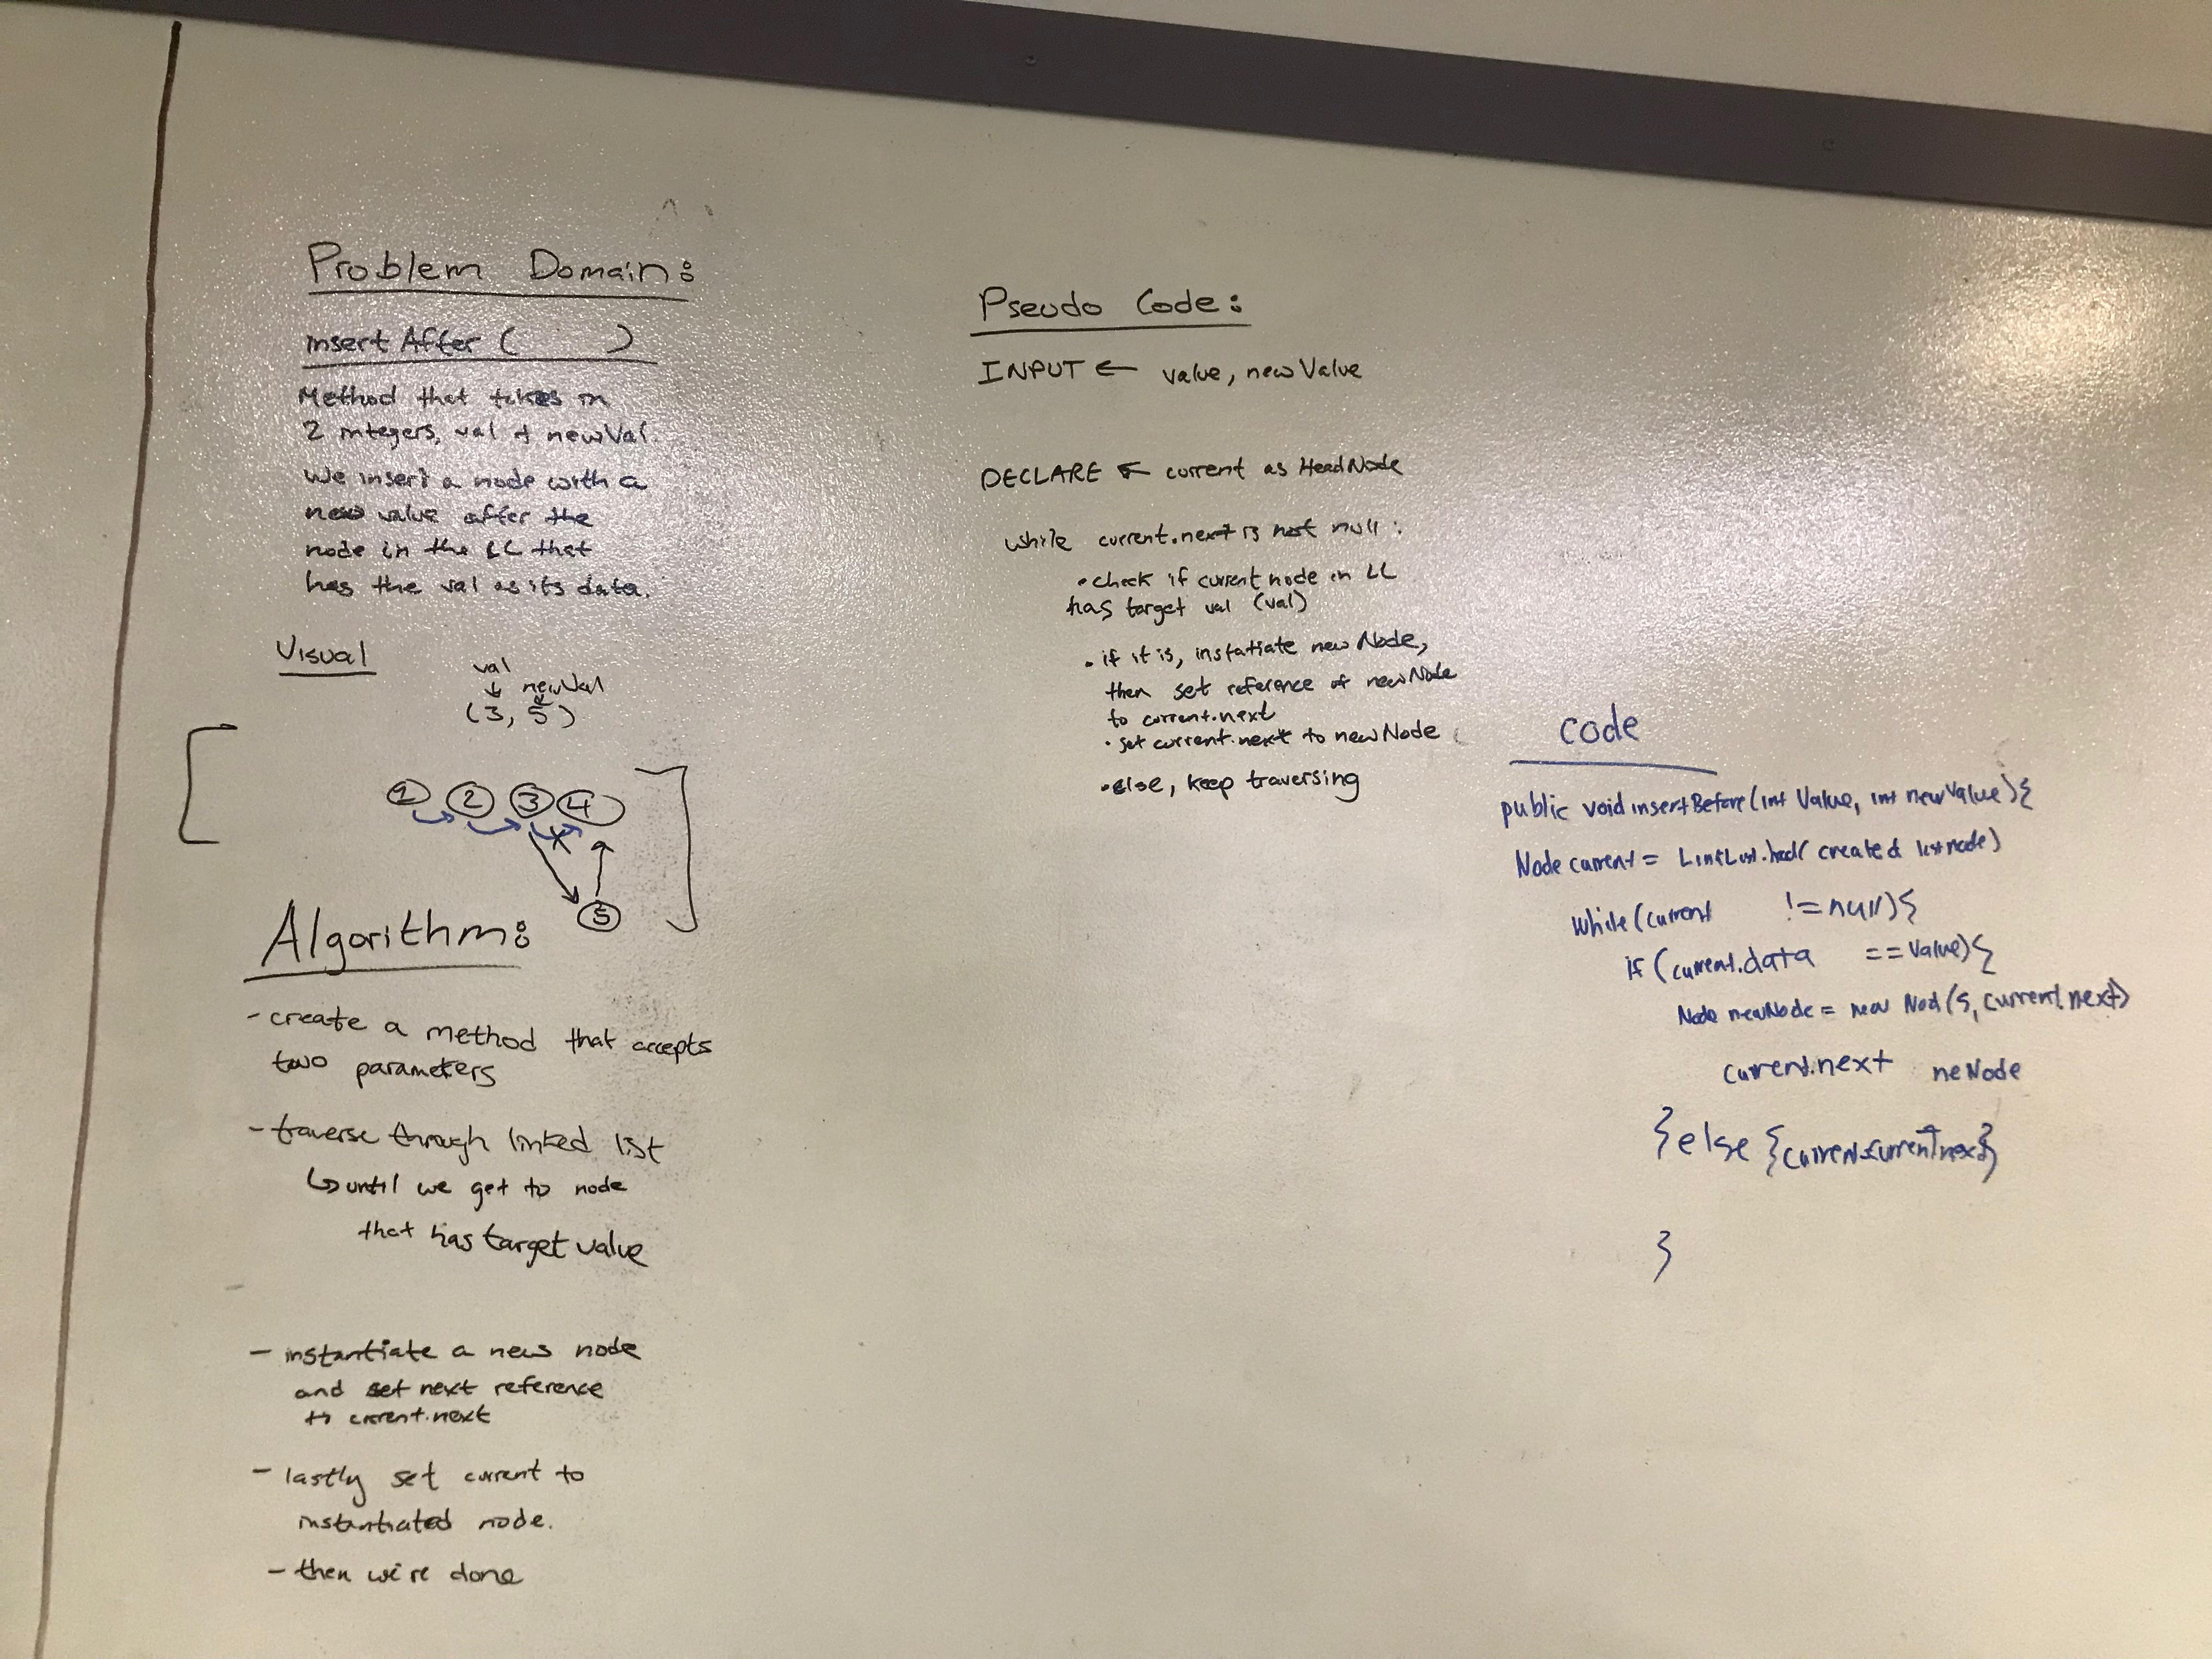 Problem Domain:
insert After ( )
Method that takes in
2 integers, val + newVal.
We insert a node with a
new value after the
node in the LL that
has the val as its data.
Visual
val
newVal
(3, 5)
1 2 3 4
5
Algorithm:
- create a method that accepts
two parameters
- traverse through linked list
↳ until we get to node
that has target value
- instantiate a new node
and set next reference
to current.next
- lastly set current to
instantiated node.
- then we're done
Pseudo Code:
INPUT ← value, newValue
DECLARE ← current as HeadNode
while current.next is not null:
• check if current node in LL
has target val (val)
• if it is, instatiate new Node,
then set reference of newNode
to current.next
• set current.next to newNode
• else, keep traversing
code
public void insertBefore(int Value, int newValue){
Node current = LinkList.head( created list node)
while(current != null){
if (current.data == Value){
Node newNode = new Nod(5, current.next)
current.next neNode
} else {current=current.next}
}